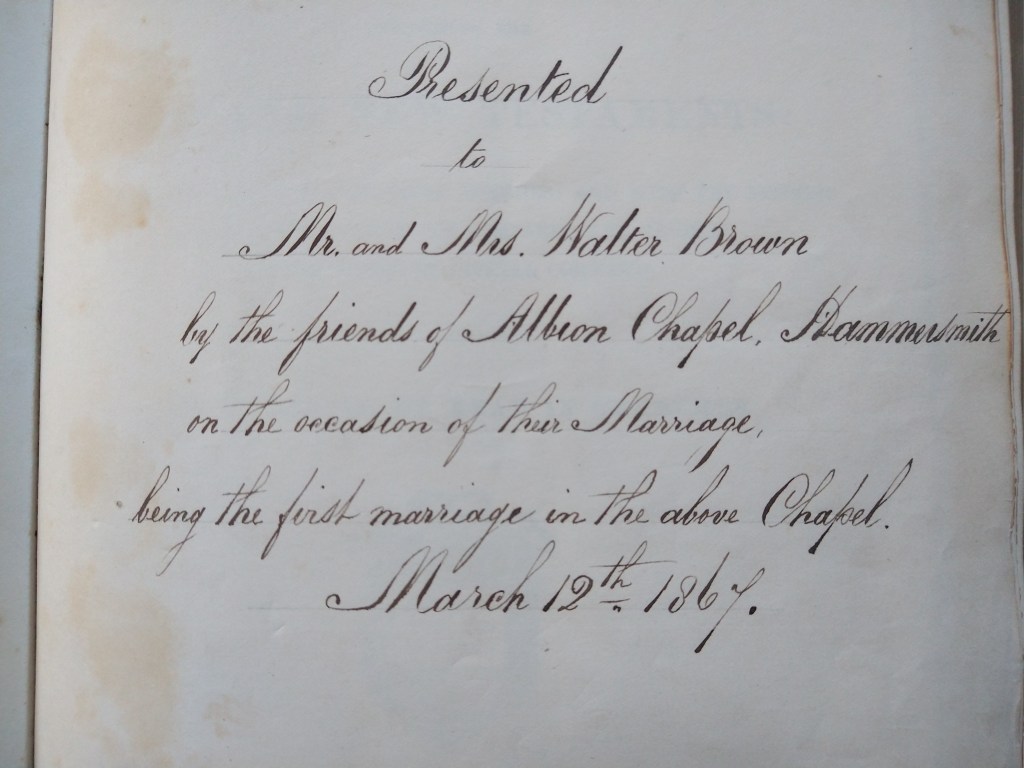 Presented
to
Mr. and Mrs. Walter Brown
by the friends of Albion Chapel, Hammersmith
on the occasion of their Marriage,
being the first marriage in the above Chapel.
March 12th. 1867.